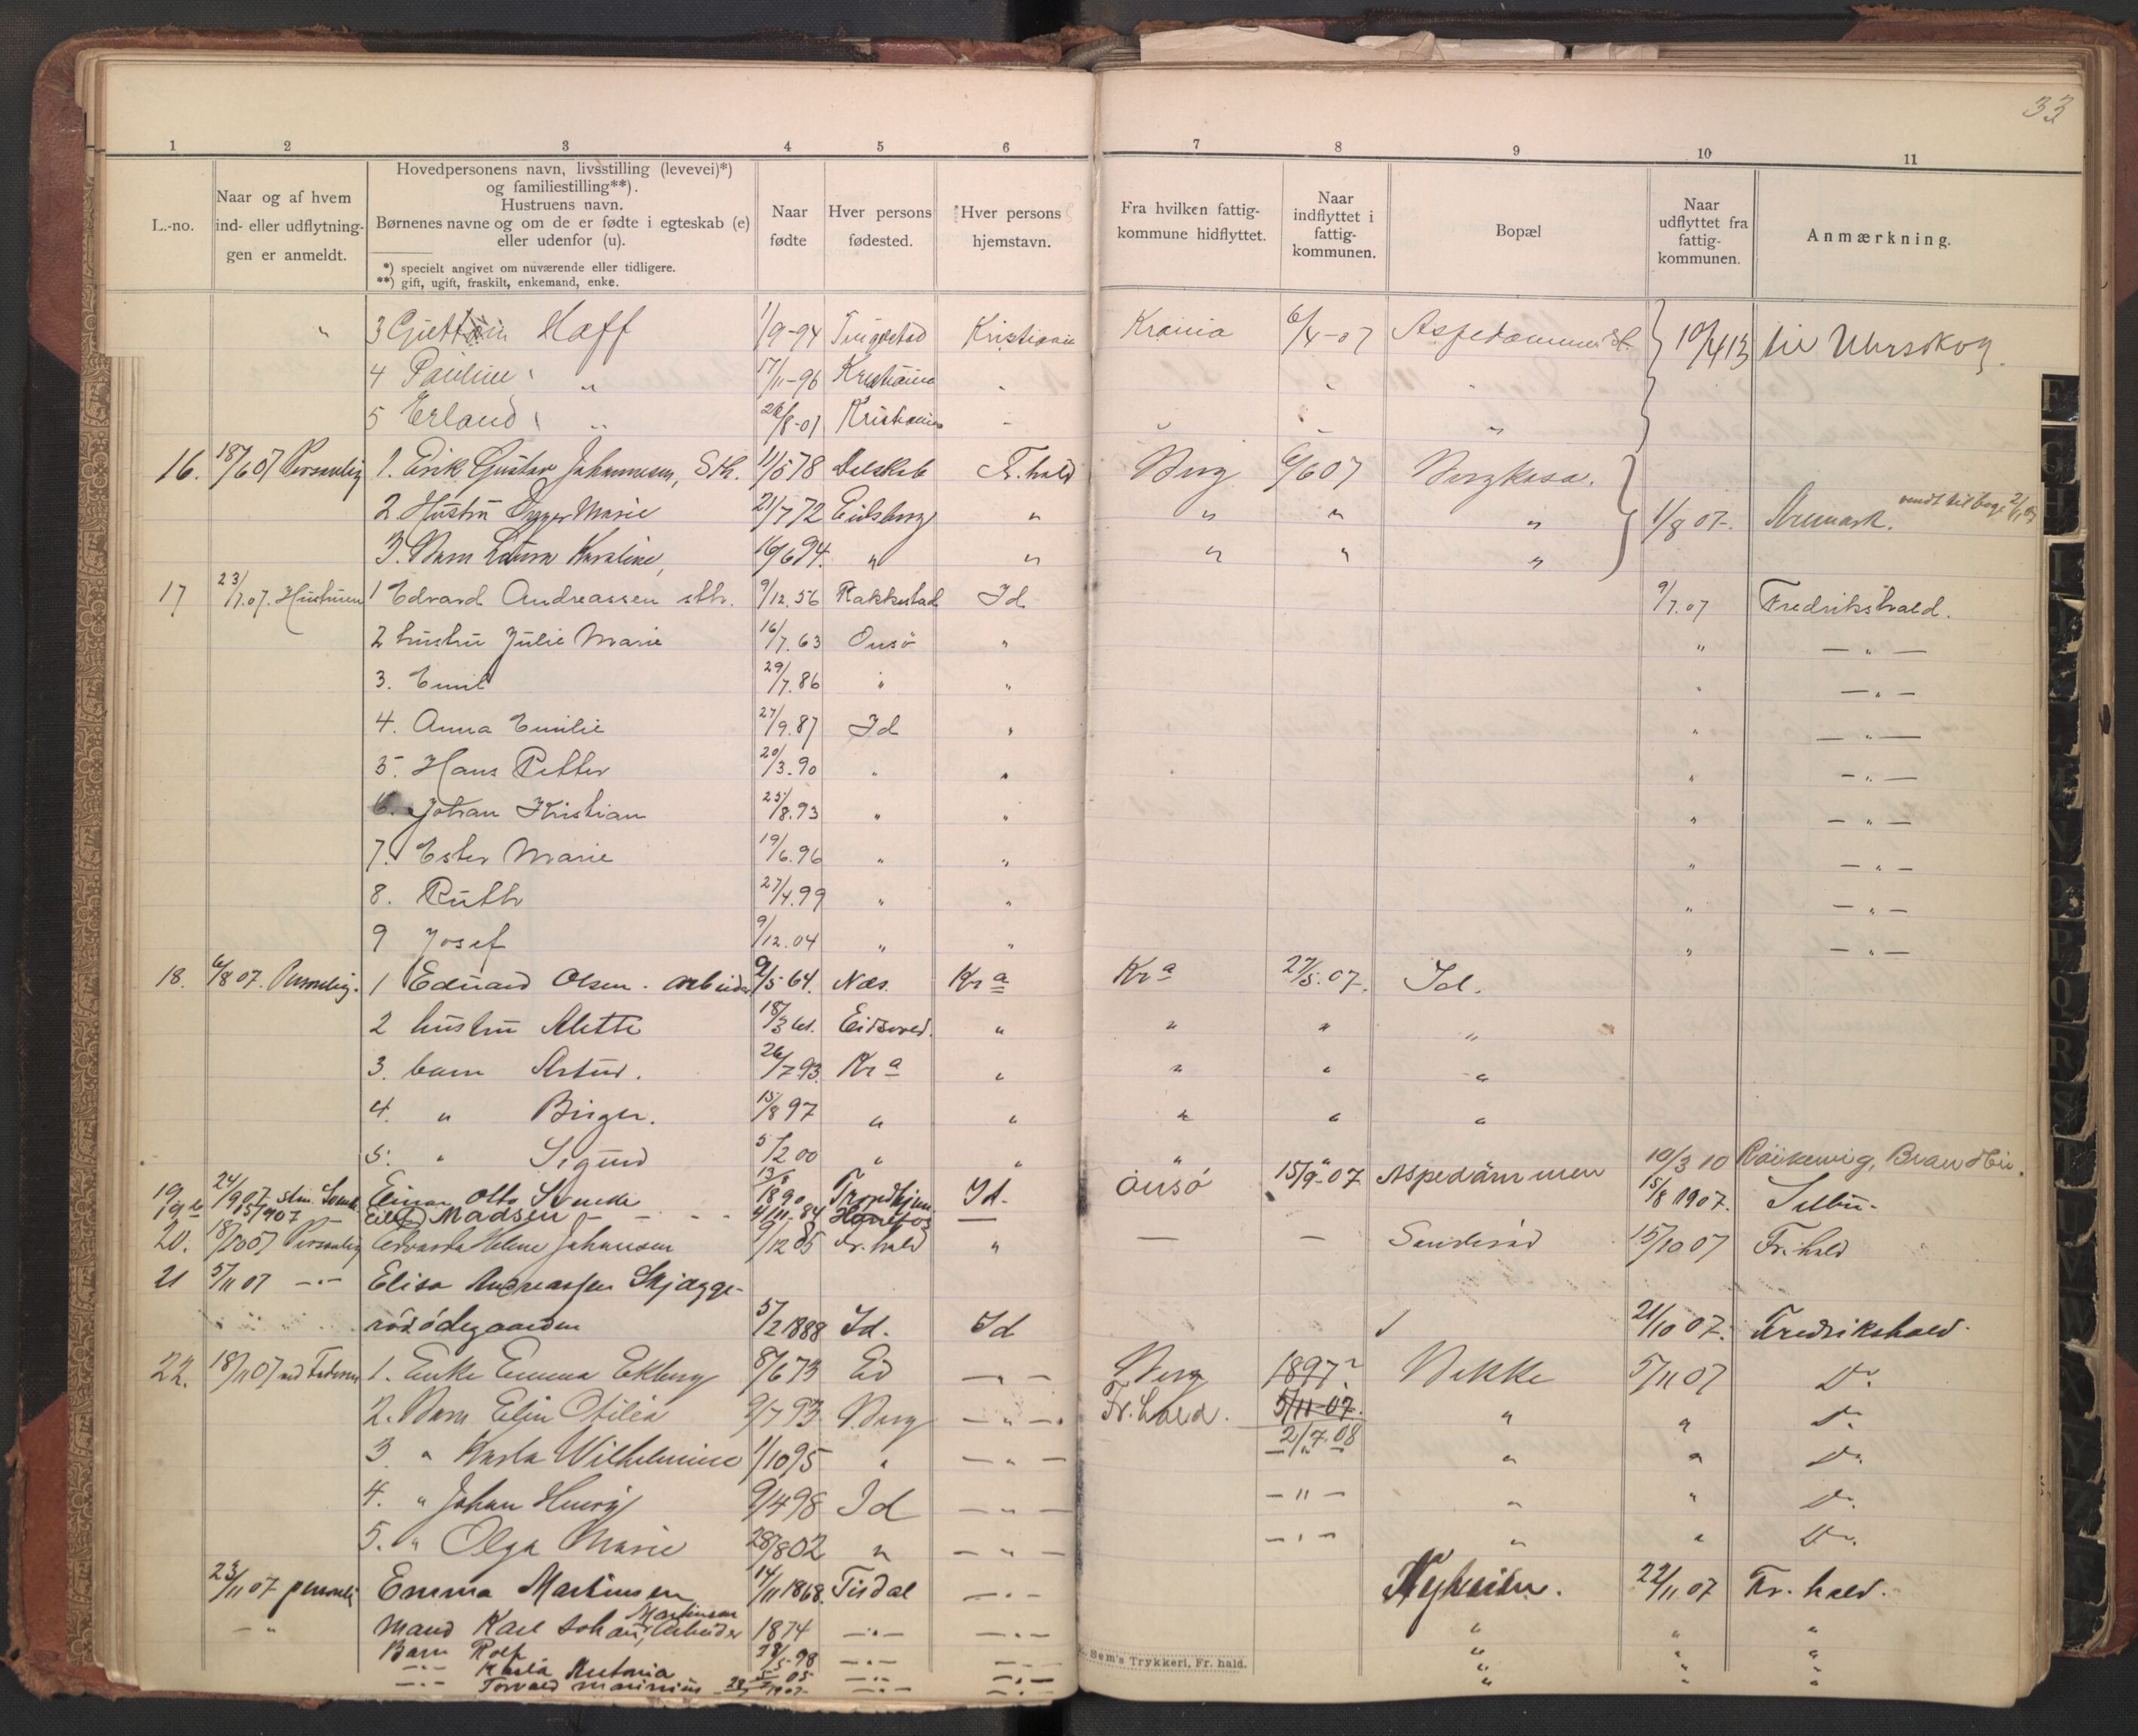 33
1 2 3 4 5 6 7 8 9 10 11
L.-no.
Naar og af hvem
ind- eller udflytnin-
gen er anmeldt.
Hovedpersonens navn, livsstilling (levevei)*)
og familiestilling**).
Hustruens navn.
Børnenes navne og om de er fødte i egteskab (e)
eller udenfor (u).
*) specielt angivet om nuværende eller tidligere.
**) gift, ugift, fraskilt, enkemand, enke.
Naar
fødte
Hver persons
fødested.
Hver persons
hjemstavn.
Fra hvilken fattig-
kommune hidflyttet.
Naar
indflyttet i
fattig-
kommunen.
Bopæl
Naar
udflyttet fra
fattig-
kommunen.
Anmærkning.
" 3 Haff 1/9-94 Tingelstad Kristiania Krania 6/4-07 Aspedammen st. 10/4 13 til Uhrskog.
4 Pauline " 17/11-96 Kristiania " " "
5 Erland " 26/8-01 Kristiania " " " "
16. 18/6 07 Personlig 1. Erik Gustav Johannesen, Sth. 11/5 78 Dalskab Fr.hald Berg 6/6 07 Bergkasa.
2. Hustru Marie 21/7 72 Eidsberg " " " " 1/8 07. Aremark. vendt tilbage 2/1 09
3. Barn Laura Karoline, 16/6 94. " " " " "
17 23/7.07. Hustruen 1 Edvard Andreassen sth. 9/12.56 Rakkestad Id 9/7.07 Fredrikshald.
2 hustru Julie Marie 16/7.63 Onsö " " — " —
3. Emil 29/7.86 " " " — " —
4. Anna Emilie 27/9.87 Id " " — " —
5. Hans Petter 20/3.90 " " " — " —
6. Johan Kristian 25/8.93 " " " — " —
7. Ester Marie 19/6.96 " " " — " —
8. Ruth 27/4.99 " " " — " —
9 Josef 9/12.04 " " " — " —
18. 6/8 07. Personlig. 1 Edvard Olsen. arbeider 9/5 64. Næs. Kra Kra 27/5.07. Id.
2 hustru Alette 18/3 61. Eidsvold. " " " "
3. barn Artur. 26/7 93. Kra " " " "
4. " Birger. 15/8 97 " " " " "
5. " Sigurd 5/2 00 " " " " 10/3 10 Brandbu.
19 24/9 07 Einar Otto 13/8 1890 Trondhjem Id. Onsö 15/9-07 Aspedammen 15/8 1907.
19b 15/9 07 — Madsen — — — 4/11-84 Hønefos —
20. 18/10 07 Personlig Edvarda Helene Johansen 9/12 85 Fr.hald " — — 15/10 07 Fr.hald
21 5/11 07 — " — Elisa Andreassen Skjægge-
rödödegaarden 5/2 1888 Id. Id 21/10 07. Fredrikshald.
22. 18/11 07 1. Enke Emma Ekberg 8/6 73 Ed — " — Berg 1897? Bekke 5/11 07 Do
2. Barn Elin Otilia 9/7 93 Berg — " — Fr.hald. 5/11 07. " " Do
2/7.08
3. " Karla Wilhelmine 1/10 95 " — " — — " — " " Do
4. " Johan Henrij 9/4 98 Id — " — — " — " " Do
5. " Olga Marie 28/8 02 " — " — — " — " " Do
23/11 07 personlig Emma Martinsen 14/11 1868. Tisdal — " — Nyheim. 22/11 07 Fr. hald.
— " Mand Karl Johan Martinsen, Arbeider 1874 — " — — " — " " "
Barn Rolf 28/5-98 — " — — " — " " "
— " — Karla Antonia 05 — " — — " — " " "
— " — Torvald 1907 — " — — " — " " "
Sem's Trykkeri, Fr. hald.